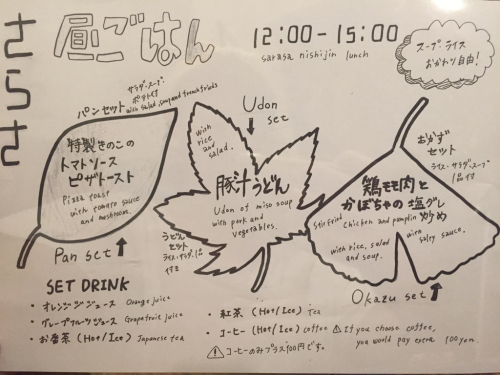 さらさ
昼ごはん
12:00-15:00
sarasa nishijin lunch
スープ・ライス
おかわり自由!
パンセット
サラダ・スープ・
ポテト付
with salad, soup and french frieds
特製きのこの
トマトソース
ピザトースト
Pizza toast
with tomato sauce
and mushroom.
Pan set
Udon
set
with rice
and
salad.
豚汁うどん
Udon of miso soup
with pork and
vegetables.
うどん
セット
ライス・サラダ・1品
付き
おかず
セット
ライス・サラダ・スープ
1品付
鶏モモ肉と
かぼちゃの塩ダレ
炒め
Stir fried Chicken and pumpkin
with salty sauce.
with rice, salad
and soup.
Okazu set
SET DRINK
・オレンジジュース Orange juice
・グレープフルーツジュース Grapefruit juice
・お番茶 (Hot/Ice) Japanese tea
・紅茶 (Hot/Ice) Tea
・コーヒー (Hot/Ice) coffee ⚠ If you choose coffee,
you would pay extra 100yen.
⚠ コーヒーのみプラス100円です。